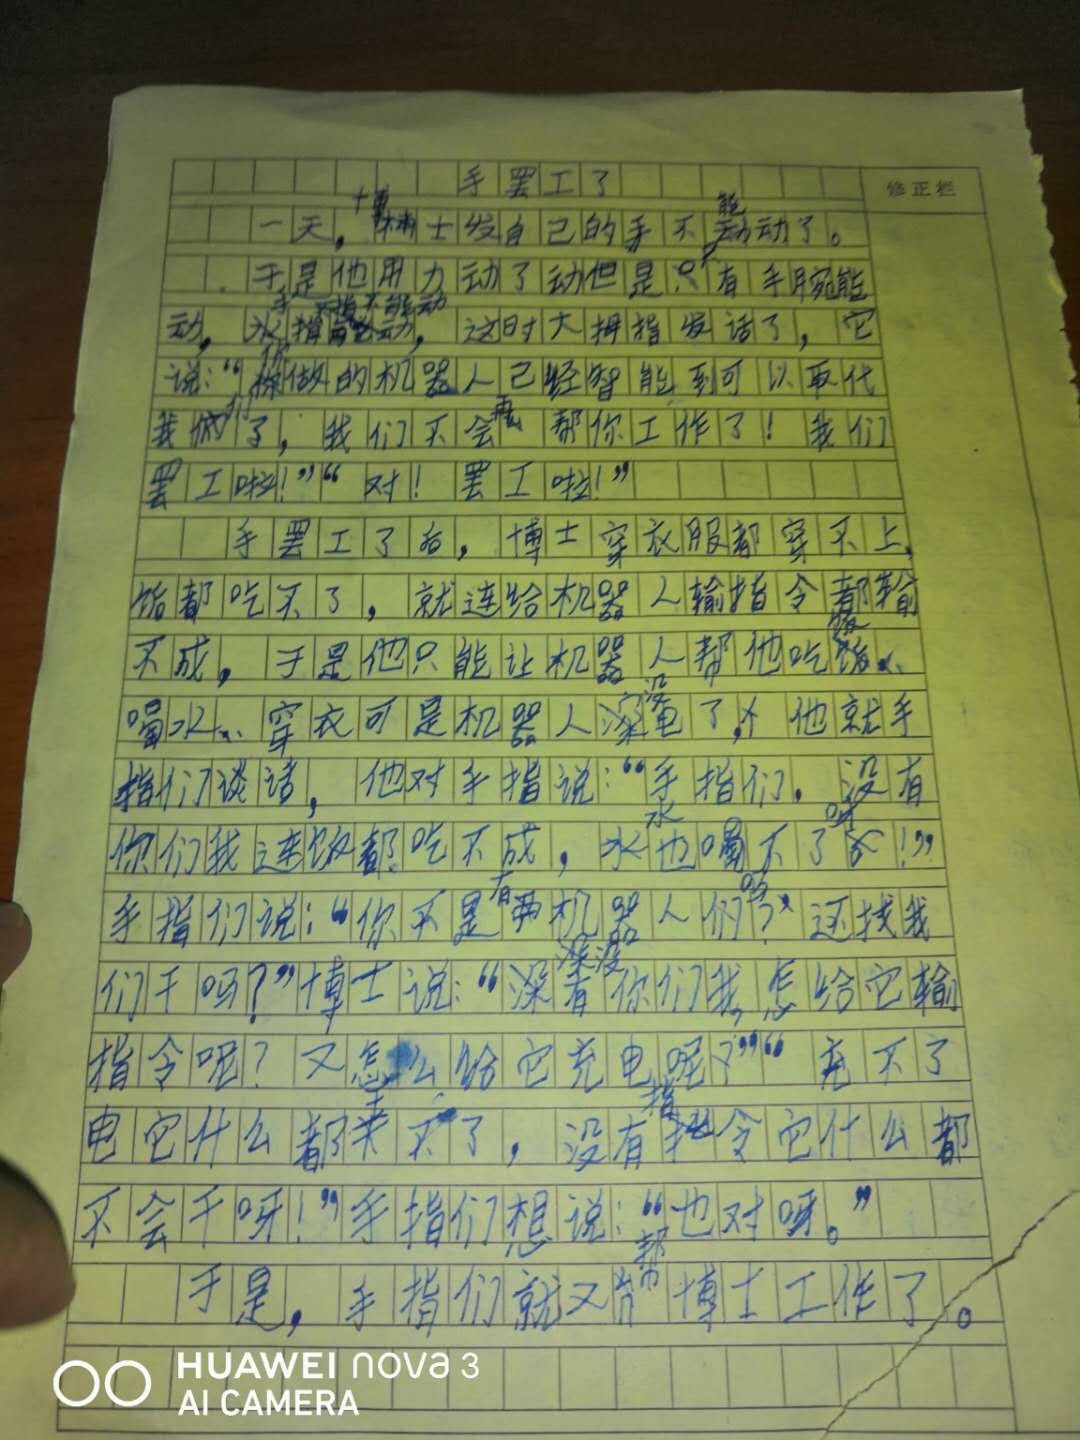 手罢工了
修正栏
一天，博士发自己的手不能动了。
于是他用力动了动但是只有手腕能
动，手指不能动，这时大拇指发话了，它
说：“你做的机器人已经智能到可以取代
我们了，我们不会再帮你工作了！我们
罢工啦！”“对！罢工啦！”
手罢工了后，博士穿衣服都穿不上，
饭都吃不了，就连给机器人输指令都输
不成，于是他只能让机器人帮他吃饭、
喝水、穿衣可是机器人没电了，他就手
指们谈话，他对手指说：“手指们，没有
你们我连饭都吃不成，水也喝不了呀！”
手指们说：“你不是有机器人们吗？还找我
们干吗？”博士说：“没有你们我，怎给它输
指令呢？又怎么给它充电呢？”“充不了
电它什么都来不了，没有指令它什么都
不会干呀！”手指们想说：“也对呀。”
于是，手指们就又帮博士工作了。
HUAWEI nova 3
AI CAMERA